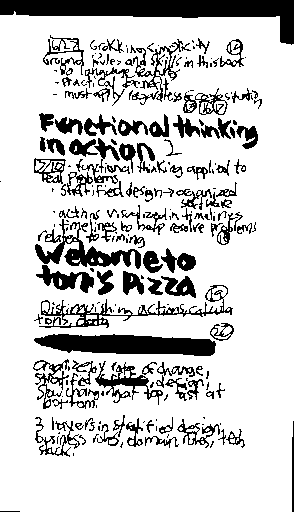 16/27 Grokking simplicity 14
Ground rules and skills in this book
- no language features
- practical benefit
- must apply regardless of code situation,
15 16 17
Functional thinking
in action
7/10 · functional thinking applied to
real problems
· stratified design → organized
software
· actions visualized in timelines
· timelines to help resolve problems
related to timing 18
Welcome to
toni's Pizza
19
Distinguishing actions, calcula
tions, data
22
organize by rate of change,
stratified design,
slow changing at top, fast at
bottom.
3 layers in stratified design,
business rules, domain rules, tech
stack.